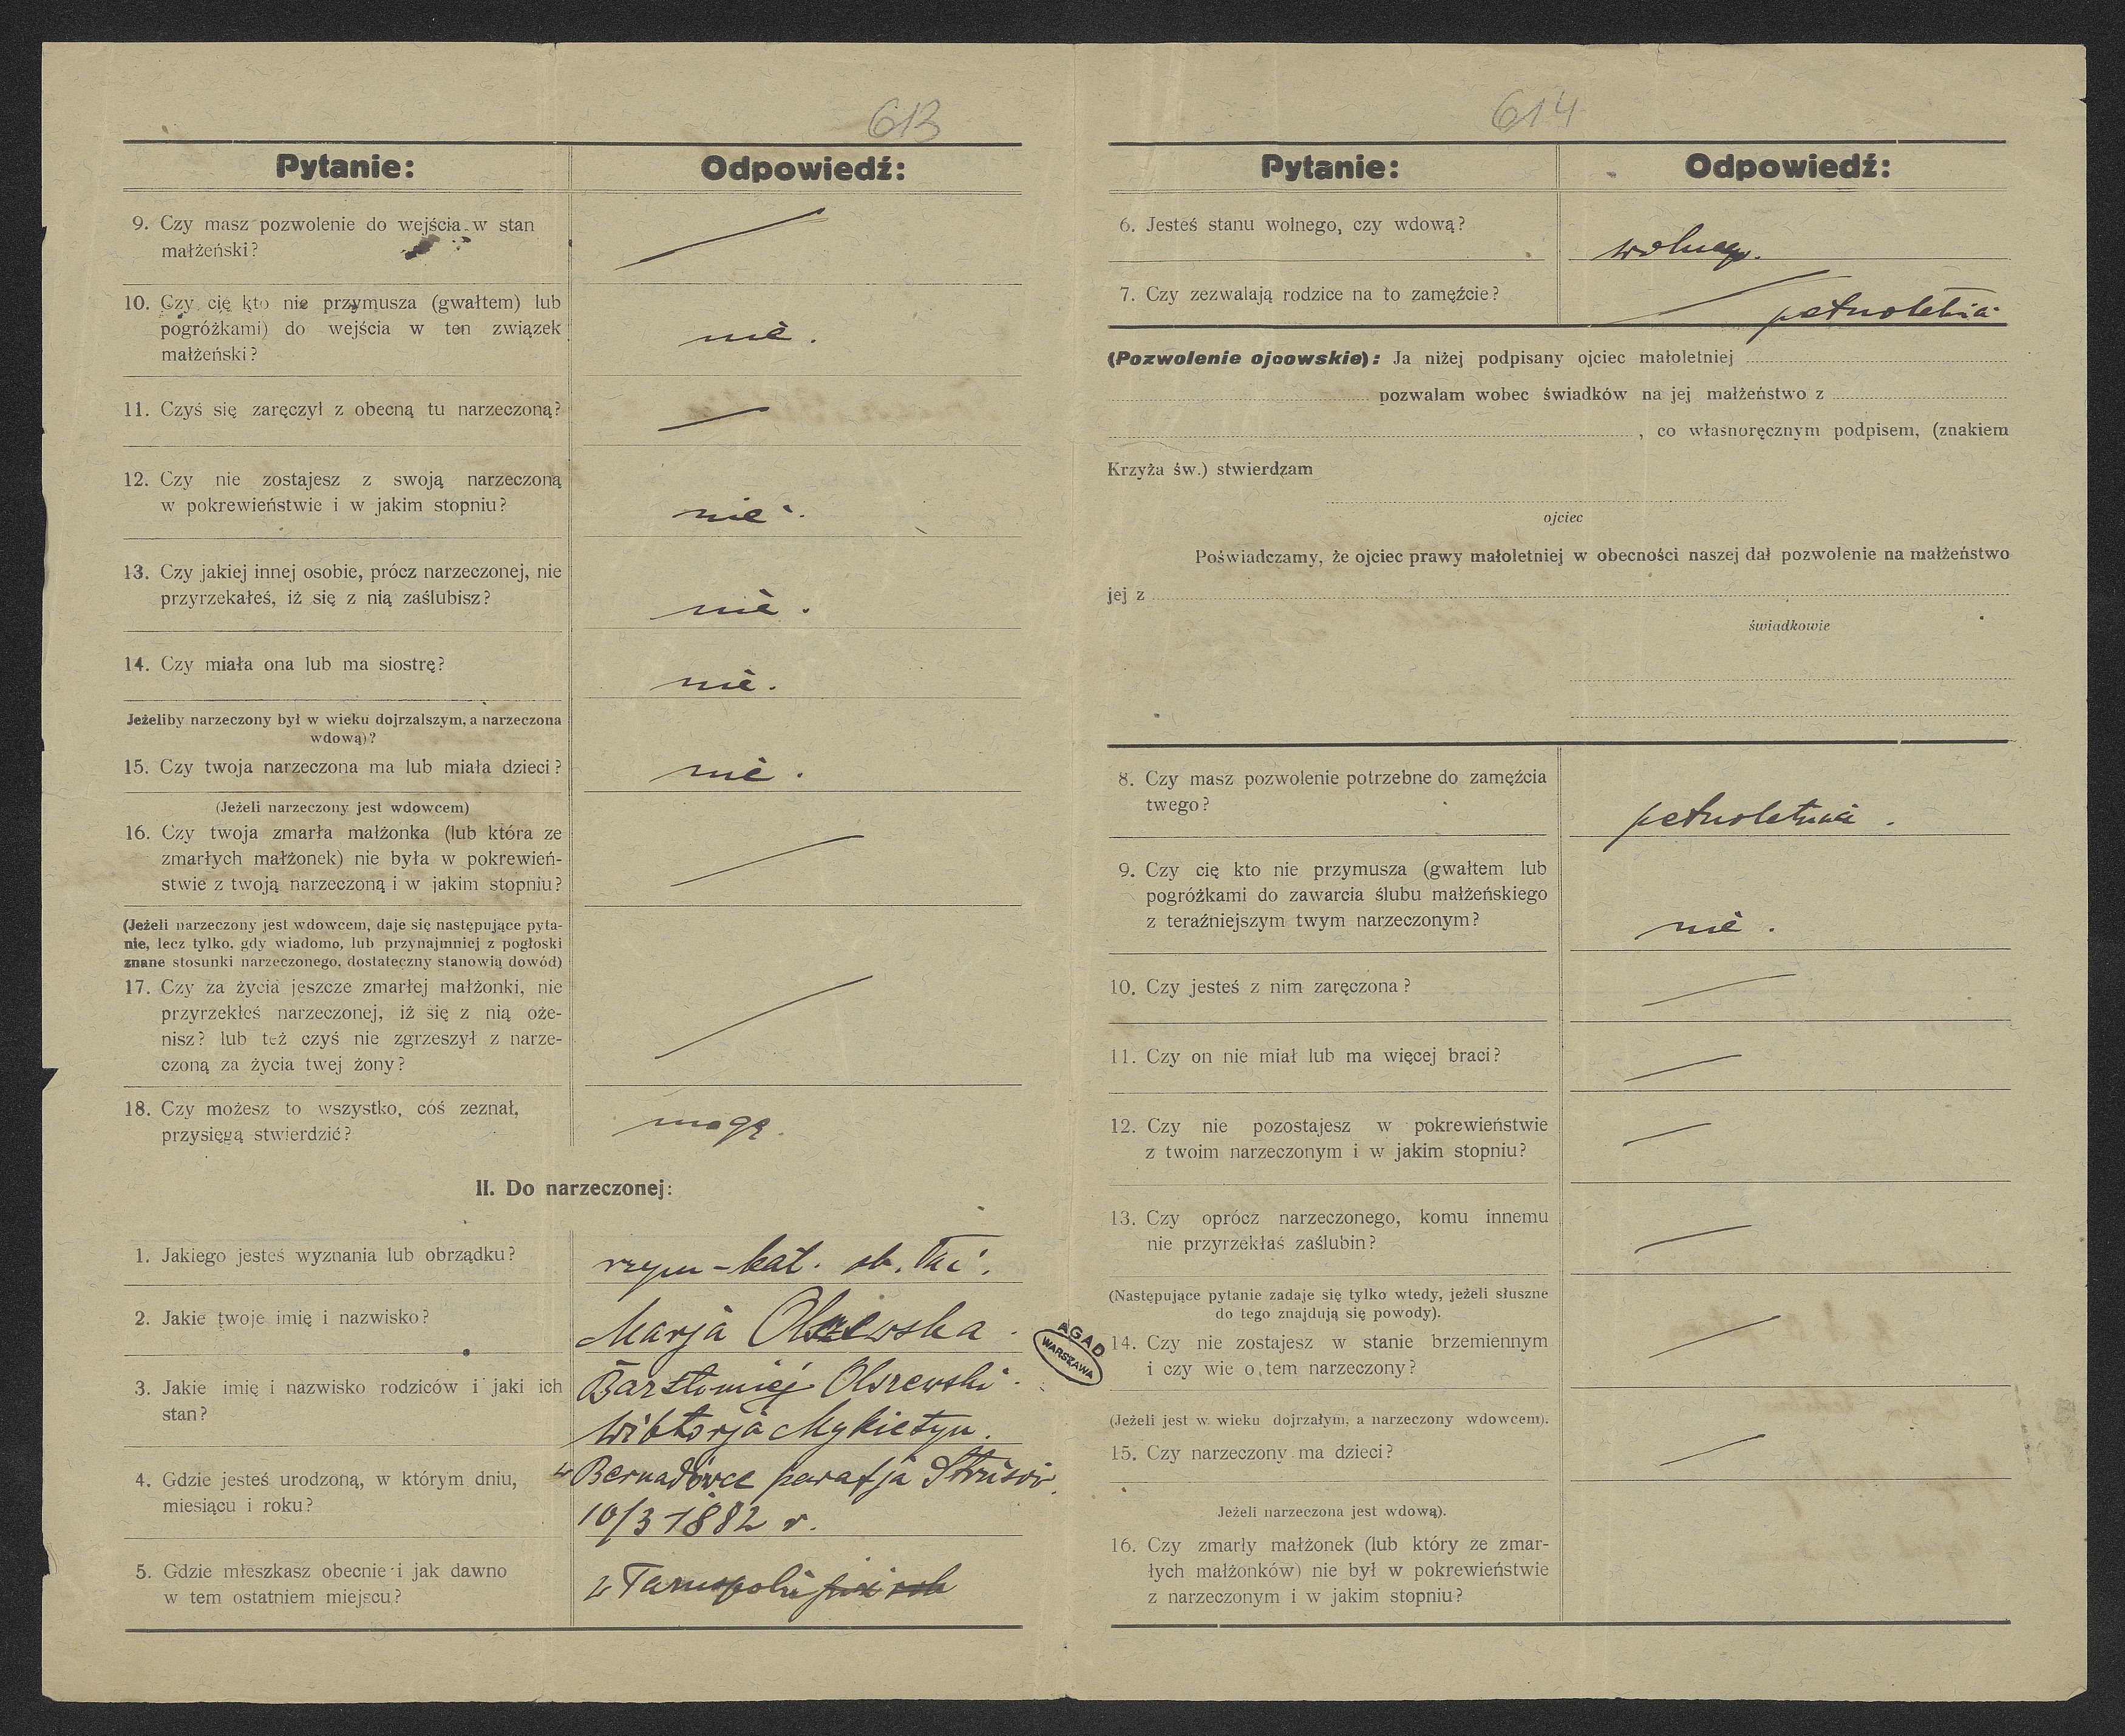 613
Pytanie:
Odpowiedź:
9. Czy masz pozwolenie do wejścia w stan
małżeński?
10. Czy cię kto nie przymusza (gwałtem) lub
pogróżkami) do wejścia w ten związek
małżeński?
nie.
11. Czyś się zaręczył z obecną tu narzeczoną?
12. Czy nie zostajesz z swoją narzeczoną
w pokrewieństwie i w jakim stopniu?
nie.
13. Czy jakiej innej osobie, prócz narzeczonej, nie
przyrzekałeś, iż się z nią zaślubisz?
nie.
14. Czy miała ona lub ma siostrę?
nie.
Jeżeliby narzeczony był w wieku dojrzalszym, a narzeczona
wdową)?
15. Czy twoja narzeczona ma lub miała dzieci?
nie.
(Jeżeli narzeczony jest wdowcem)
16. Czy twoja zmarła małżonka (lub która ze
zmarłych małżonek) nie była w pokrewień-
stwie z twoją narzeczoną i w jakim stopniu?
(Jeżeli narzeczony jest wdowcem, daje się następujące pyta-
nie, lecz tylko, gdy wiadomo, lub przynajmniej z pogłoski
znane stosunki narzeczonego, dostateczny stanowią dowód)
17. Czy za życia jeszcze zmarłej małżonki, nie
przyrzekłeś narzeczonej, iż się z nią oże-
nisz? lub też czyś nie zgrzeszył z narze-
czoną za życia twej żony?
18. Czy możesz to wszystko, coś zeznał,
przysięgą stwierdzić?
mogę.
II. Do narzeczonej:
1. Jakiego jesteś wyznania lub obrządku?
rzym-kat. ob. łać.
2. Jakie twoje imię i nazwisko?
Marja Olszewska.
3. Jakie imię i nazwisko rodziców i jaki ich
stan?
Bartłomiej Olszewski.
Wiktorja Mykietyn.
4. Gdzie jesteś urodzoną, w którym dniu,
miesiącu i roku?
w Bernadówce parafja Strusów.
10/3 1882 r.
5. Gdzie mieszkasz obecnie i jak dawno
w tem ostatniem miejscu?
w Tarnopolu
AGAD
WARSZAWA
614
Pytanie:
Odpowiedź:
6. Jesteś stanu wolnego, czy wdową?
wolnego.
7. Czy zezwalają rodzice na to zamęźcie?
pełnoletnia
(Pozwolenie ojcowskie): Ja niżej podpisany ojciec małoletniej
pozwalam wobec świadków na jej małżeństwo z
, co własnoręcznym podpisem, (znakiem
Krzyża św.) stwierdzam
ojciec
Poświadczamy, że ojciec prawy małoletniej w obecności naszej dał pozwolenie na małżeństwo
jej z
świadkowie
8. Czy masz pozwolenie potrzebne do zamęźcia
twego?
pełnoletnia.
9. Czy cię kto nie przymusza (gwałtem lub
pogróżkami do zawarcia ślubu małżeńskiego
z teraźniejszym twym narzeczonym?
nie.
10. Czy jesteś z nim zaręczona?
11. Czy on nie miał lub ma więcej braci?
12. Czy nie pozostajesz w pokrewieństwie
z twoim narzeczonym i w jakim stopniu?
13. Czy oprócz narzeczonego, komu innemu
nie przyrzekłaś zaślubin?
(Następujące pytanie zadaje się tylko wtedy, jeżeli słuszne
do tego znajdują się powody).
14. Czy nie zostajesz w stanie brzemiennym
i czy wie o tem narzeczony?
(Jeżeli jest w wieku dojrzałym, a narzeczony wdowcem).
15. Czy narzeczony ma dzieci?
Jeżeli narzeczona jest wdową).
16. Czy zmarły małżonek (lub który ze zmar-
łych małżonków) nie był w pokrewieństwie
z narzeczonym i w jakim stopniu?